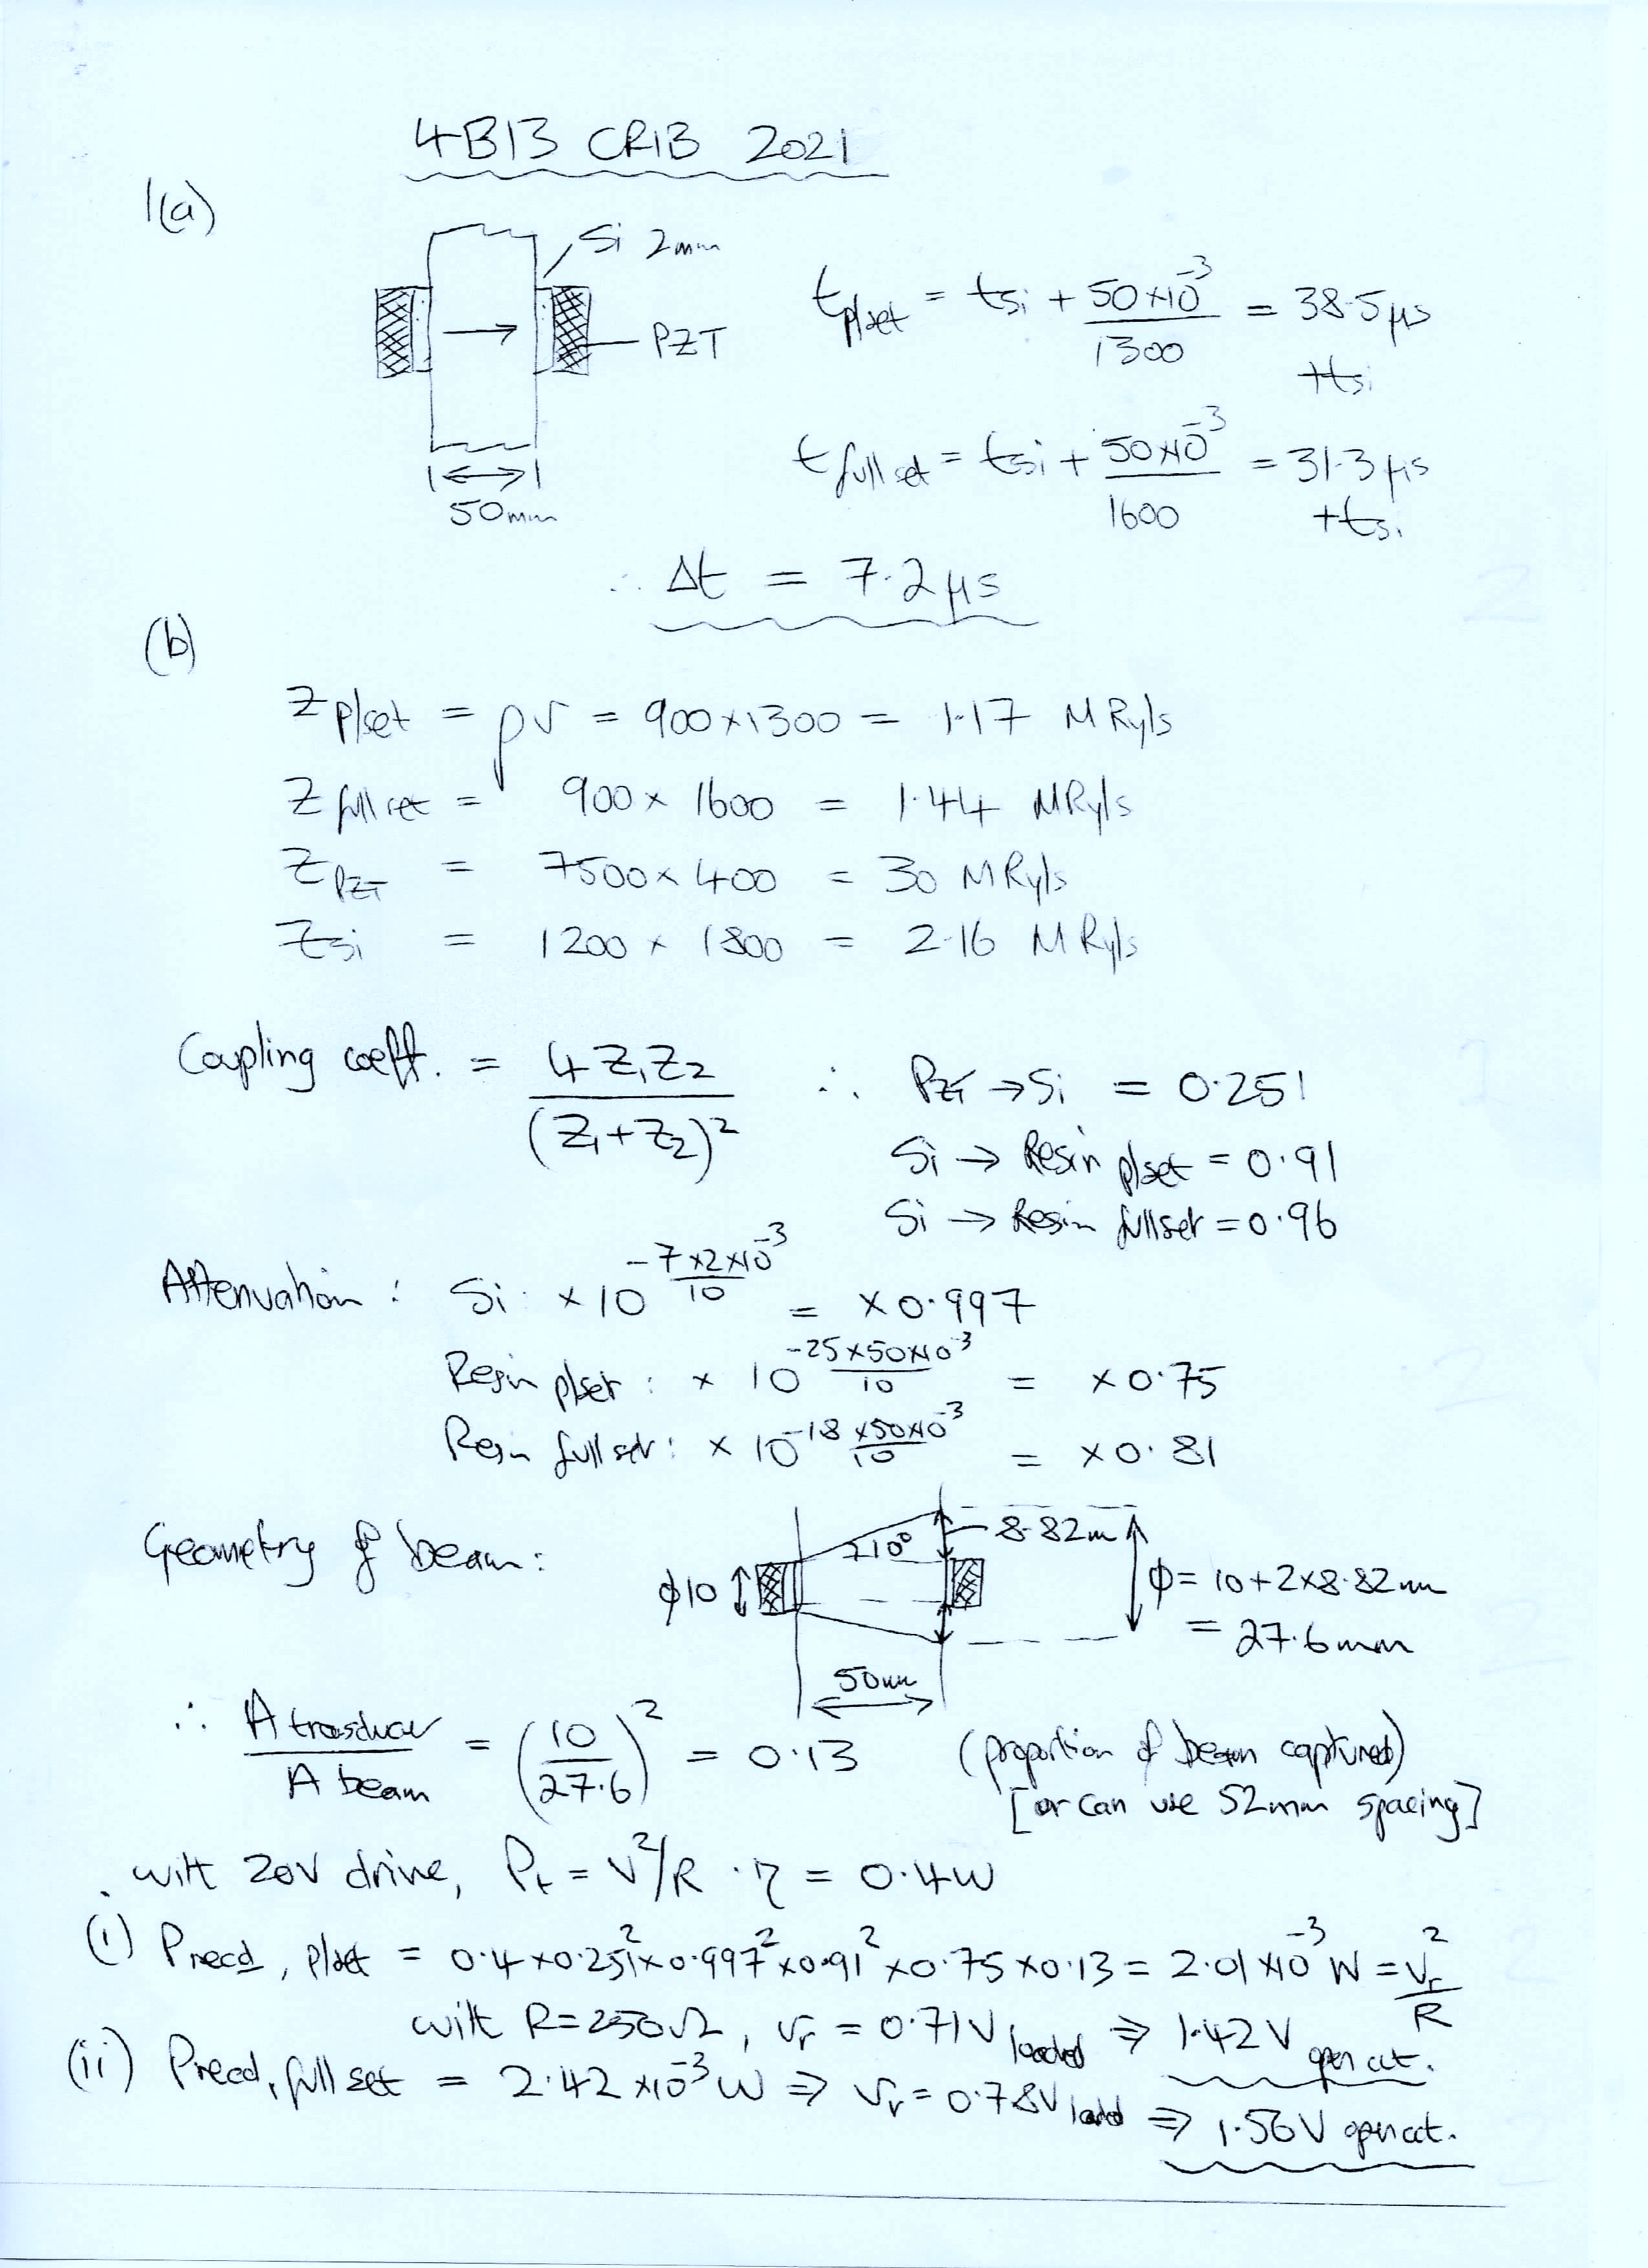 4B13 CRIB 2021
1(a)
Si 2mm
PZT
50mm
t plset = tsi + 50×10^-3 / 1300 = 38.5 μs + tsi
t fullset = tsi + 50×10^-3 / 1600 = 31.3 μs + tsi
∴ Δt = 7.2 μs
(b)
Z plset = ρv = 900×1300 = 1.17 MRyls
Z fullset = 900 × 1600 = 1.44 MRyls
Z PZT = 7500 × 400 = 30 MRyls
Zsi = 1200 × 1800 = 2.16 MRyls
Coupling coeff. = 4 Z1 Z2 / (Z1+Z2)^2 ∴ PZT → Si = 0.251
Si → Resin plset = 0.91
Si → Resin fullset = 0.96
Attenuation : Si : × 10^(-7×2×10^-3 / 10) = × 0.997
Resin plset : × 10^(-25×50×10^-3 / 10) = × 0.75
Resin fullset : × 10^(-18×50×10^-3 / 10) = × 0.81
Geometry of beam:
φ10
±10°
8.82m
50mm
φ = 10+2×8.82mm
= 27.6mm
∴ A trasducer / A beam = (10 / 27.6)^2 = 0.13 (proportion of beam captured)
[or can use 52mm spacing]
. with 20V drive, Pt = V^2/R . η = 0.4W
(i) Precd, plset = 0.4×0.251^2×0.997^2×0.91^2×0.75×0.13 = 2.01×10^-3 W = Vr^2 / R
with R=250Ω, Vr = 0.71V loaded ⇒ 1.42V open cct.
(ii) Precd, fullset = 2.42 ×10^-3 W ⇒ Vr = 0.78V loaded ⇒ 1.56V open cct.